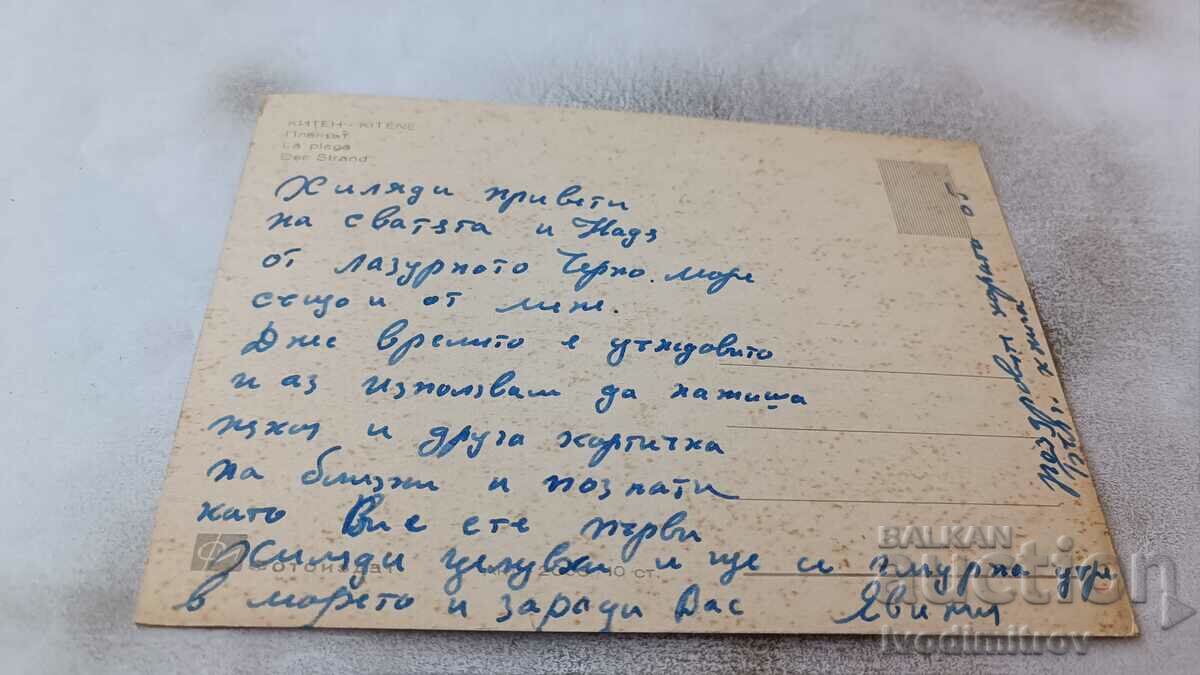 КИТЕН - KITENE
Плажът
La plage
Der Strand
Хиляди привети
на сватята и Надя
от лазурното Черно море
също и от мене.
Днес времето е
и аз използвам да напиша
някоя и друга картичка
на близки и познати
като Вие сте първи
Хиляди целувки и ще се гмурна
в морето и заради Вас
ФОТОИЗДАТ
10 ст.
поздрови от
BALKAN
auction
ivodimitrov